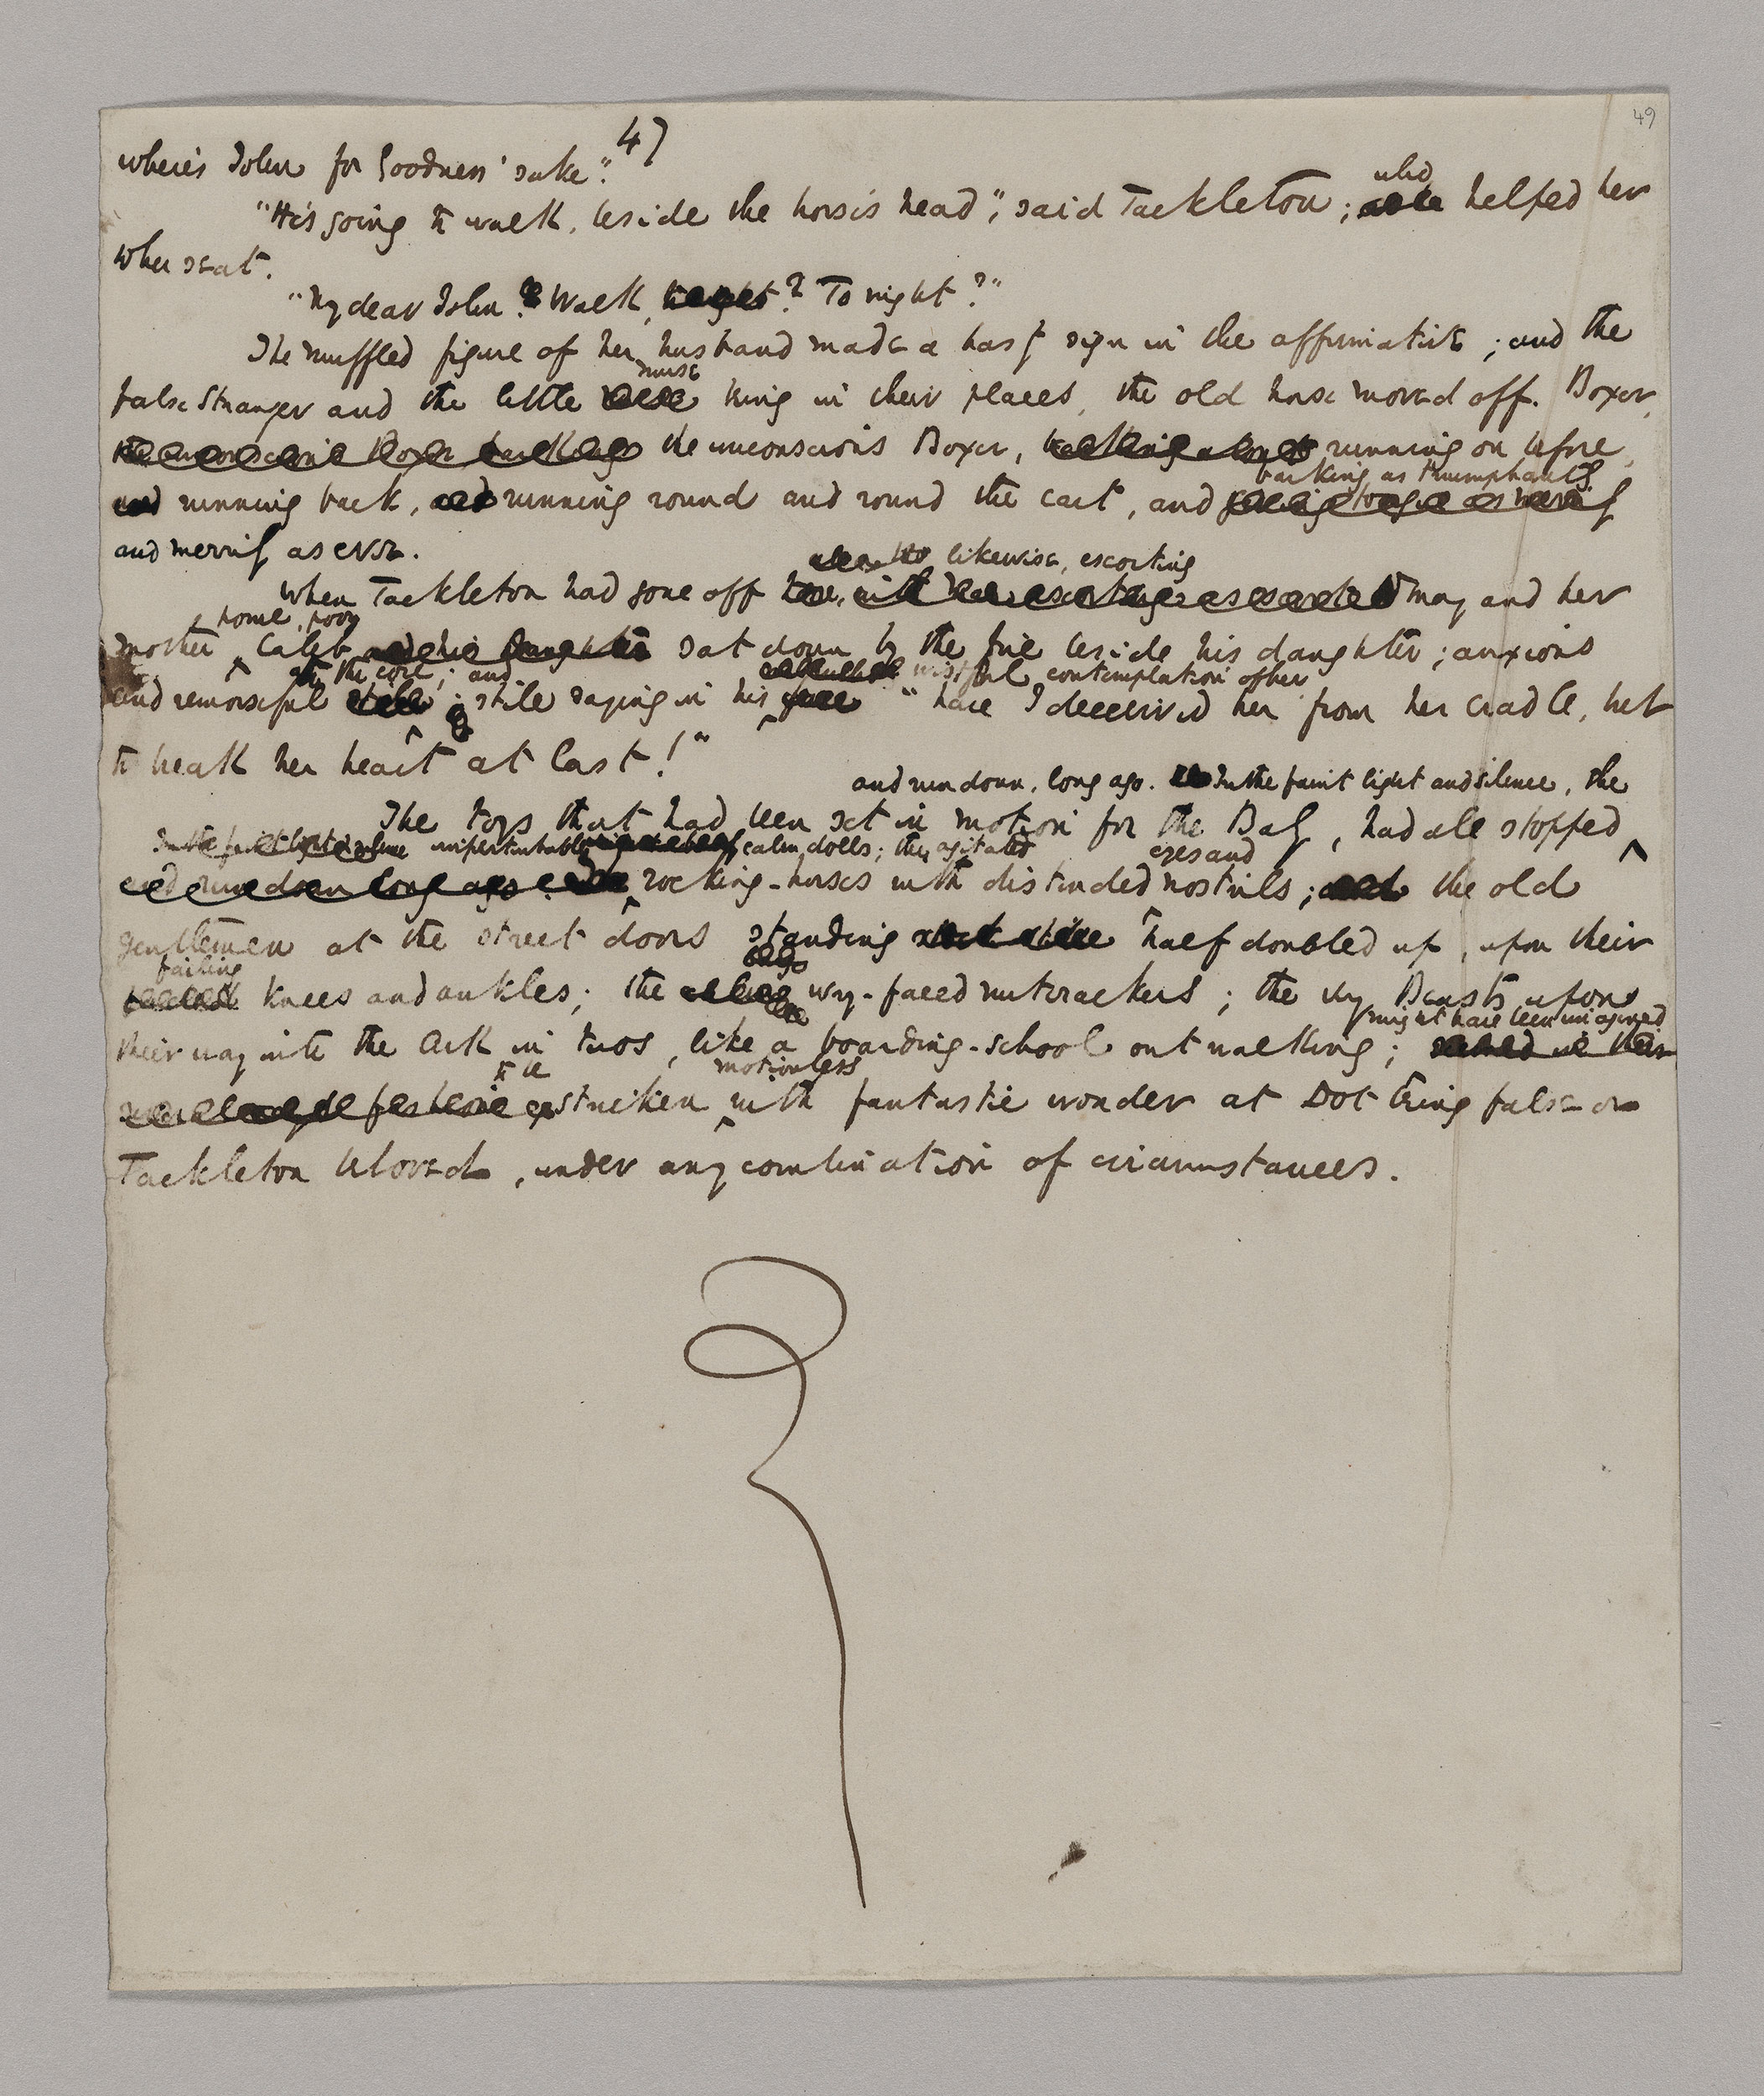 47
49
where's John for Goodness' sake."
"He's going to walk, beside the horse's head", said Tackleton; who helped her
to her seat.
"My dear John! Walk, ? To night?"
The muffled figure of her husband made a hasty sign in the affirmative; and the
false Stranger and the little nurse being in their places, the old horse moved off. Boxer,
the unconscious Boxer, running on before,
running back, running round and round the cart, and barking as triumphantly
and merrily as ever.
When Tackleton had gone off likewise, escorting May and her
mother home, poor Caleb sat down by the fire beside his daughter; anxious
and remorseful at the core; and still saying in his wistful contemplation of her "have I deceived her from her cradle, but
to break her heart at last!"
The toys that had been set in motion for the Baby, had all stopped
and run down, long ago. In the faint light and silence, the
imperturbably calm dolls; the agitated rocking-horses with distended eyes and nostrils; the old
gentlemen at the street doors standing half doubled up, upon their
failing knees and ankles; the wry-faced nutcrackers; the very Beasts upon
their way into the Ark in twos, like a boarding-school out walking; might have been imagined
to be stricken motionless with fantastic wonder at Dot being false or
Tackleton beloved, under any combination of circumstances.